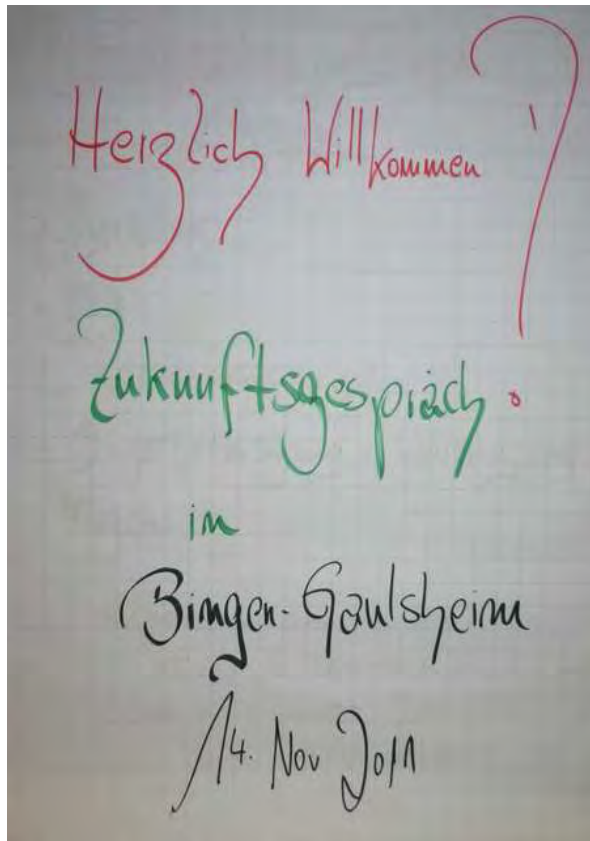 Herzlich Willkommen ?
Zukunftsgespräch
in
Bingen-Gaulsheim
14. Nov 2011